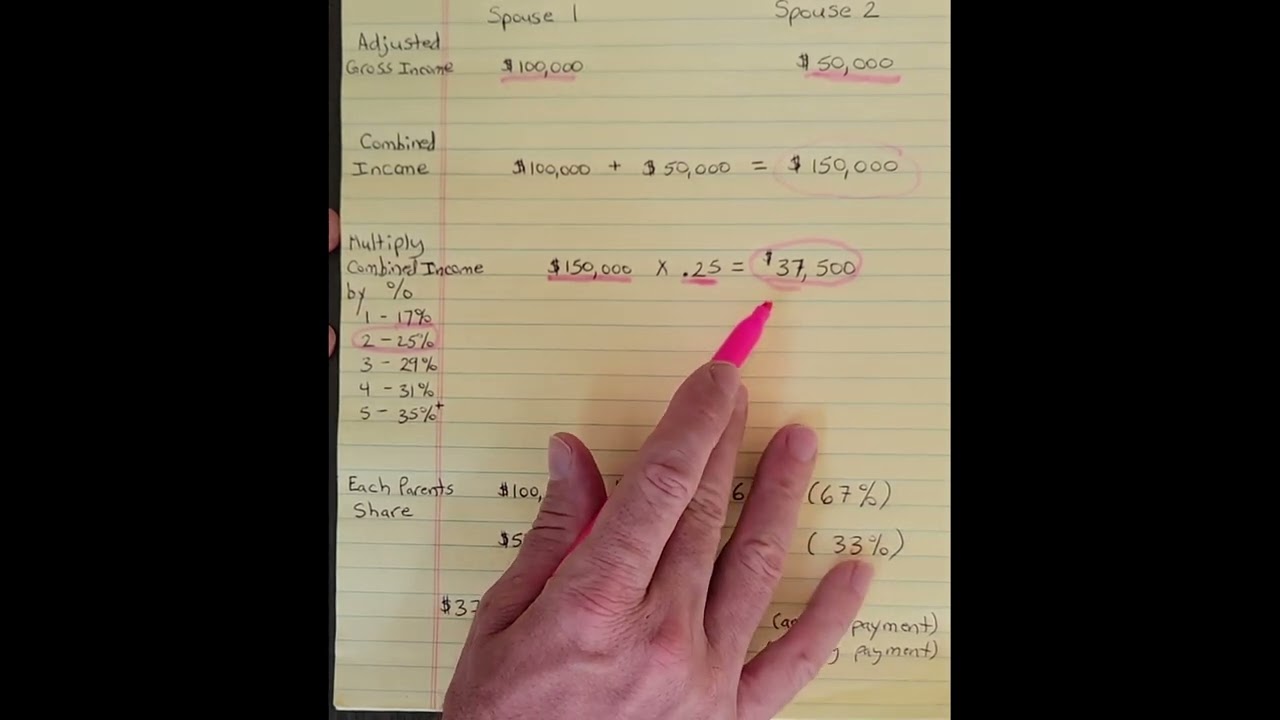 Spouse 1 Spouse 2
Adjusted
Gross Income $100,000 $50,000
Combined
Income $100,000 + $50,000 = $150,000
Multiply
Combined Income $150,000 x .25 = $37,500
by %
1 - 17%
2 - 25%
3 - 29%
4 - 31%
5 - 35%+
Each Parents $100, 6 (67%)
Share
$5 (33%)
$37
payment)
payment)